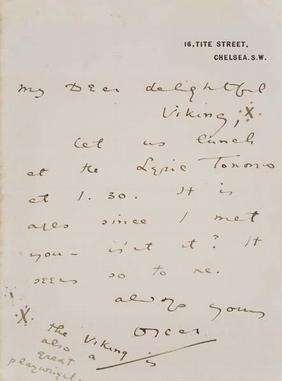 16, TITE STREET,
CHELSEA. S.W.
My Dear delightful
Viking, .X.
Let us lunch
at the Lyric Tomorrow
at 1.30. It is
ages since I met
you – isn't it? It
seems so to me.
always yours
Oscar
.X. the Viking is
also a
great
playwright.